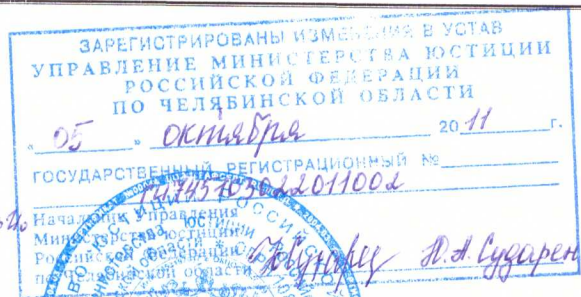 ЗАРЕГИСТРИРОВАНЫ ИЗМЕНЕНИЯ В УСТАВ
УПРАВЛЕНИЕ МИНИСТЕРСТВА ЮСТИЦИИ
РОССИЙСКОЙ ФЕДЕРАЦИИ
ПО ЧЕЛЯБИНСКОЙ ОБЛАСТИ
« 05 » октября 20 11 г.
ГОСУДАРСТВЕННЫЙ РЕГИСТРАЦИОННЫЙ №
Начальник Управления
Министерства юстиции
Российской Федерации
по Челябинской области